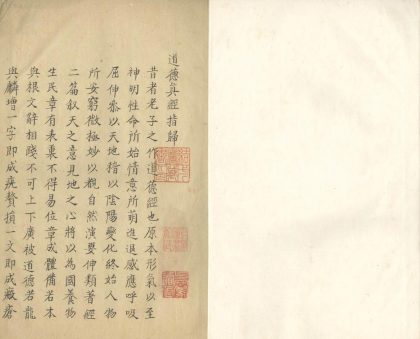 道德眞經指歸
昔者老子之作道德經也原本形氣以至
神明性命所始情意所萌進退感應呼吸
屈伸參以天地稽以陰陽變化終始人物
所安窮微極妙以觀自然演要伸類著經
二篇叙天之意見地之心將以為國養物
生民章有表裏不得易位章成體備若本
與根文辭相踐不可上下廣被道德若龍
與麟增一字即成疣贅損一文即成瘢瘡